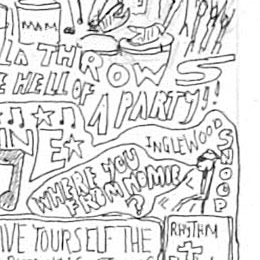 MAM
LA THROWS
E HELL OF A PARTY!!
INE
INGLEWOOD
SNOOP
WHERE YOU
FROM HOMIE
?
IVE YOURSELF THE
RHYTHM